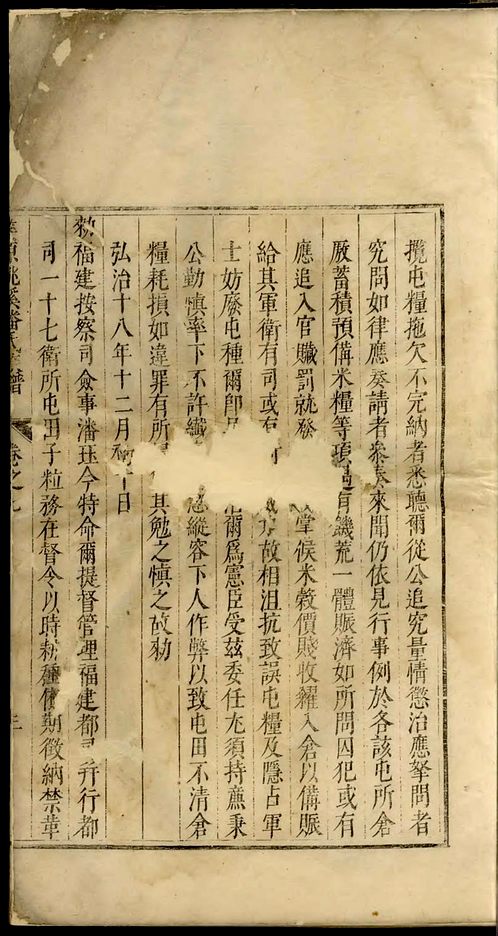 攬屯糧拖欠不完納者悉聽爾從公追究量情懲治應拏問者
究問如律應奏請者叅奏來聞仍依見行事例於各該屯所倉
厫蓄積預備米糧等項遇有饑荒一體賑濟如所問囚犯或有
應追入官贓罰就發掌候米穀價賤收糴入倉以備賑
給其軍衛有司或有故相沮抗致誤屯糧及隱占軍
士妨廢屯種爾卽爾爲憲臣受兹委任尤須持廉秉
公勤慎率下不許縱容下人作弊以致屯田不清倉
糧耗損如違罪有所其勉之慎之故勑
弘治十八年十二月初十日
勑福建按察司僉事潘珏今特命爾提督管理福建都司并行都
司一十七衛所屯田子粒務在督令以時耕種依期徵納禁革
桃溪潘氏譜 卷之九 三